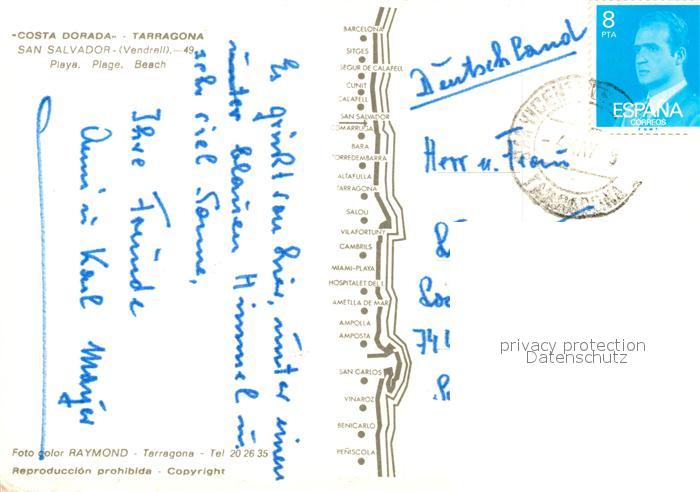 "COSTA DORADA" - TARRAGONA
SAN SALVADOR - (Vendrell). - 49
Playa, Plage, Beach
Es grüßt von hier, unter einem
blauen Himmel u.
sehr viel Sonne,
Ihre Freunde
Anni u Karl Mayer
Foto color RAYMOND - Tarragona - Tel 20 26 35
Reproducción prohibida - Copyright
BARCELONA
SITGES
SEGUR DE CALAFELL
CUNIT
CALAFELL
SAN SALVADOR
COMARRUGA
BARA
TORREDEMBARRA
ALTAFULLA
TARRAGONA
SALOU
VILAFORTUNY
CAMBRILS
MIAMI-PLAYA
HOSPITALET DEL I.
AMETLLA DE MAR
AMPOLLA
AMPOSTA
SAN CARLOS
VINAROZ
BENICARLO
PEÑISCOLA
Deutschland
8
PTA
ESPAÑA
CORREOS
F.N.M.T.
TARRAGONA
Herr u. Frau
74
privacy protection
Datenschutz